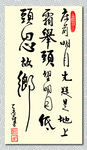 床前明月光疑是地上
霜舉頭望明月低
頭思故鄉